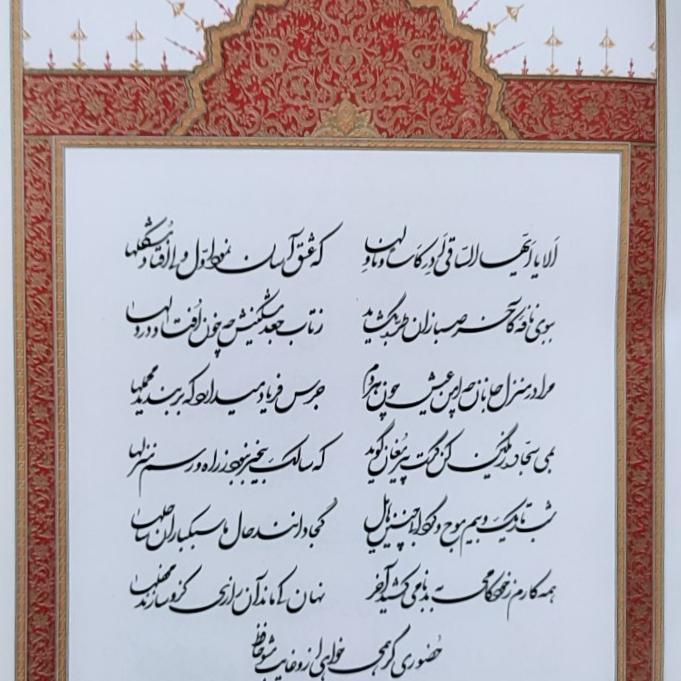 الا یا ایها الساقی ادر کاسا و ناولها که عشق آسان نمود اول ولی افتاد مشکلها
ببوی نافه کآخر صبا زان طره بگشاید ز تاب جعد مشکینش چه خون افتاد در دلها
مرا در منزل جانان چه امن عیش چون هر دم جرس فریاد میدارد که بربندید محملها
بمی سجاده رنگین کن گرت پیر مغان گوید که سالک بیخبر نبود ز راه و رسم منزلها
شب تاریک و بیم موج و گردابی چنین هایل کجا دانند حال ما سبکباران ساحلها
همه کارم ز خودکامی به بدنامی کشید آخر نهان کی ماند آن رازی کزو سازند محفلها
حضوری گر همی خواهی ازو غایب مشو حافظ